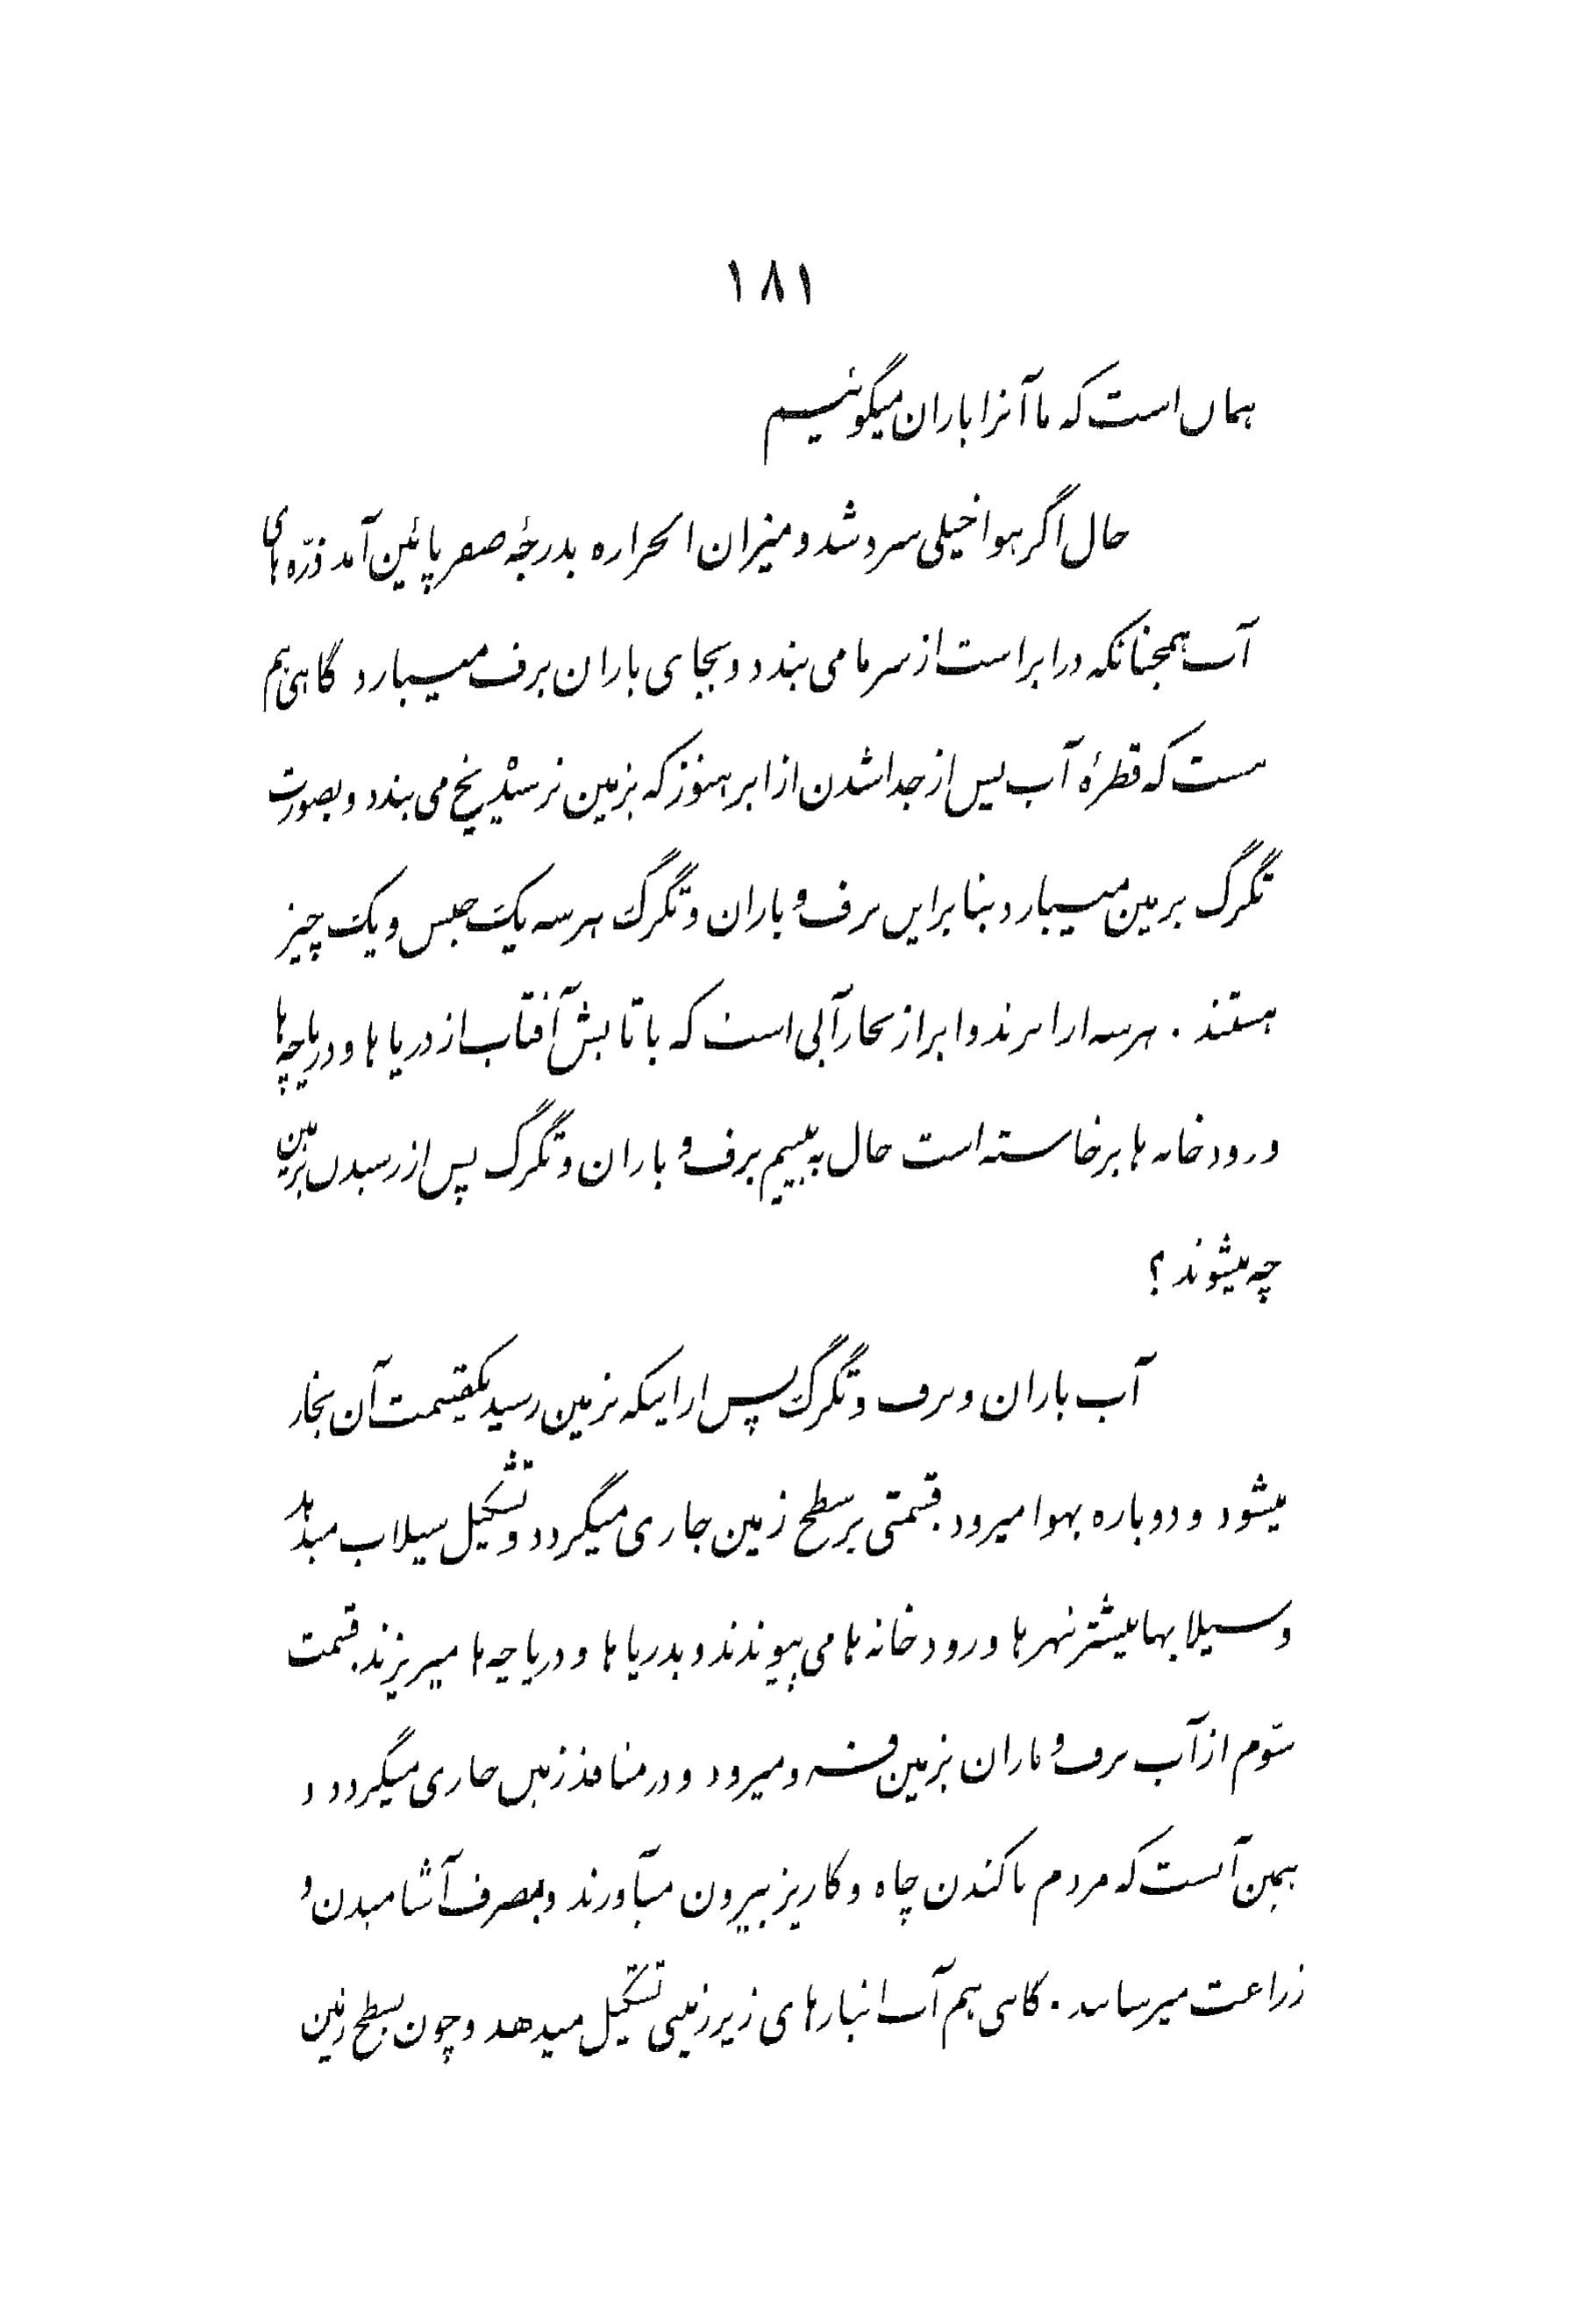 ۱۸۱
همان است که ما آنرا باران میگوئیم
حال اگر هوا خیلی سرد شد و میزان الحراره بدرجهٔ صفر پائین آمد ذرّه های
آب همچنانکه در ابر است از سرما می بندد و بجای باران برف میبارد گاهی هم
هست که قطرهٔ آب پس از جدا شدن از ابر هنوز که بزمین نرسیده یخ می بندد و بصورت
تگرگ بزمین میبارد بنابراین برف و باران و تگرگ هر سه یک جنس و یک چیز
هستند . هر سه از ابرند و ابر از بخار آبی است که با تابش آفتاب از دریا ها و دریاچه ها
و رودخانه ها برخاسته است حال به بینیم برف و باران و تگرگ پس از رسیدن بزمین
چه میشوند ؟
آب باران و برف و تگرگ پس از اینکه بزمین رسید یکقسمت آن بخار
میشود و دوباره بهوا میرود . قسمتی بر سطح زمین جاری میگردد و تشکیل سیلاب میدهد
و سیلابها بیشتر نهر ها و رودخانه ها می پیوندند و بدریا ها و دریاچه ها میریزند . قسمت
سّوم از آب برف و باران بزمین فرو میرود و در منافذ زمین جاری میگردد و
همین آبست که مردم با کندن چاه و کاریز بیرون میآورند و بمصرف آشامیدن و
زراعت میرسانند . گاهی هم آب انبارهای زیرزمینی تشکیل میدهد و چون بسطح زمین